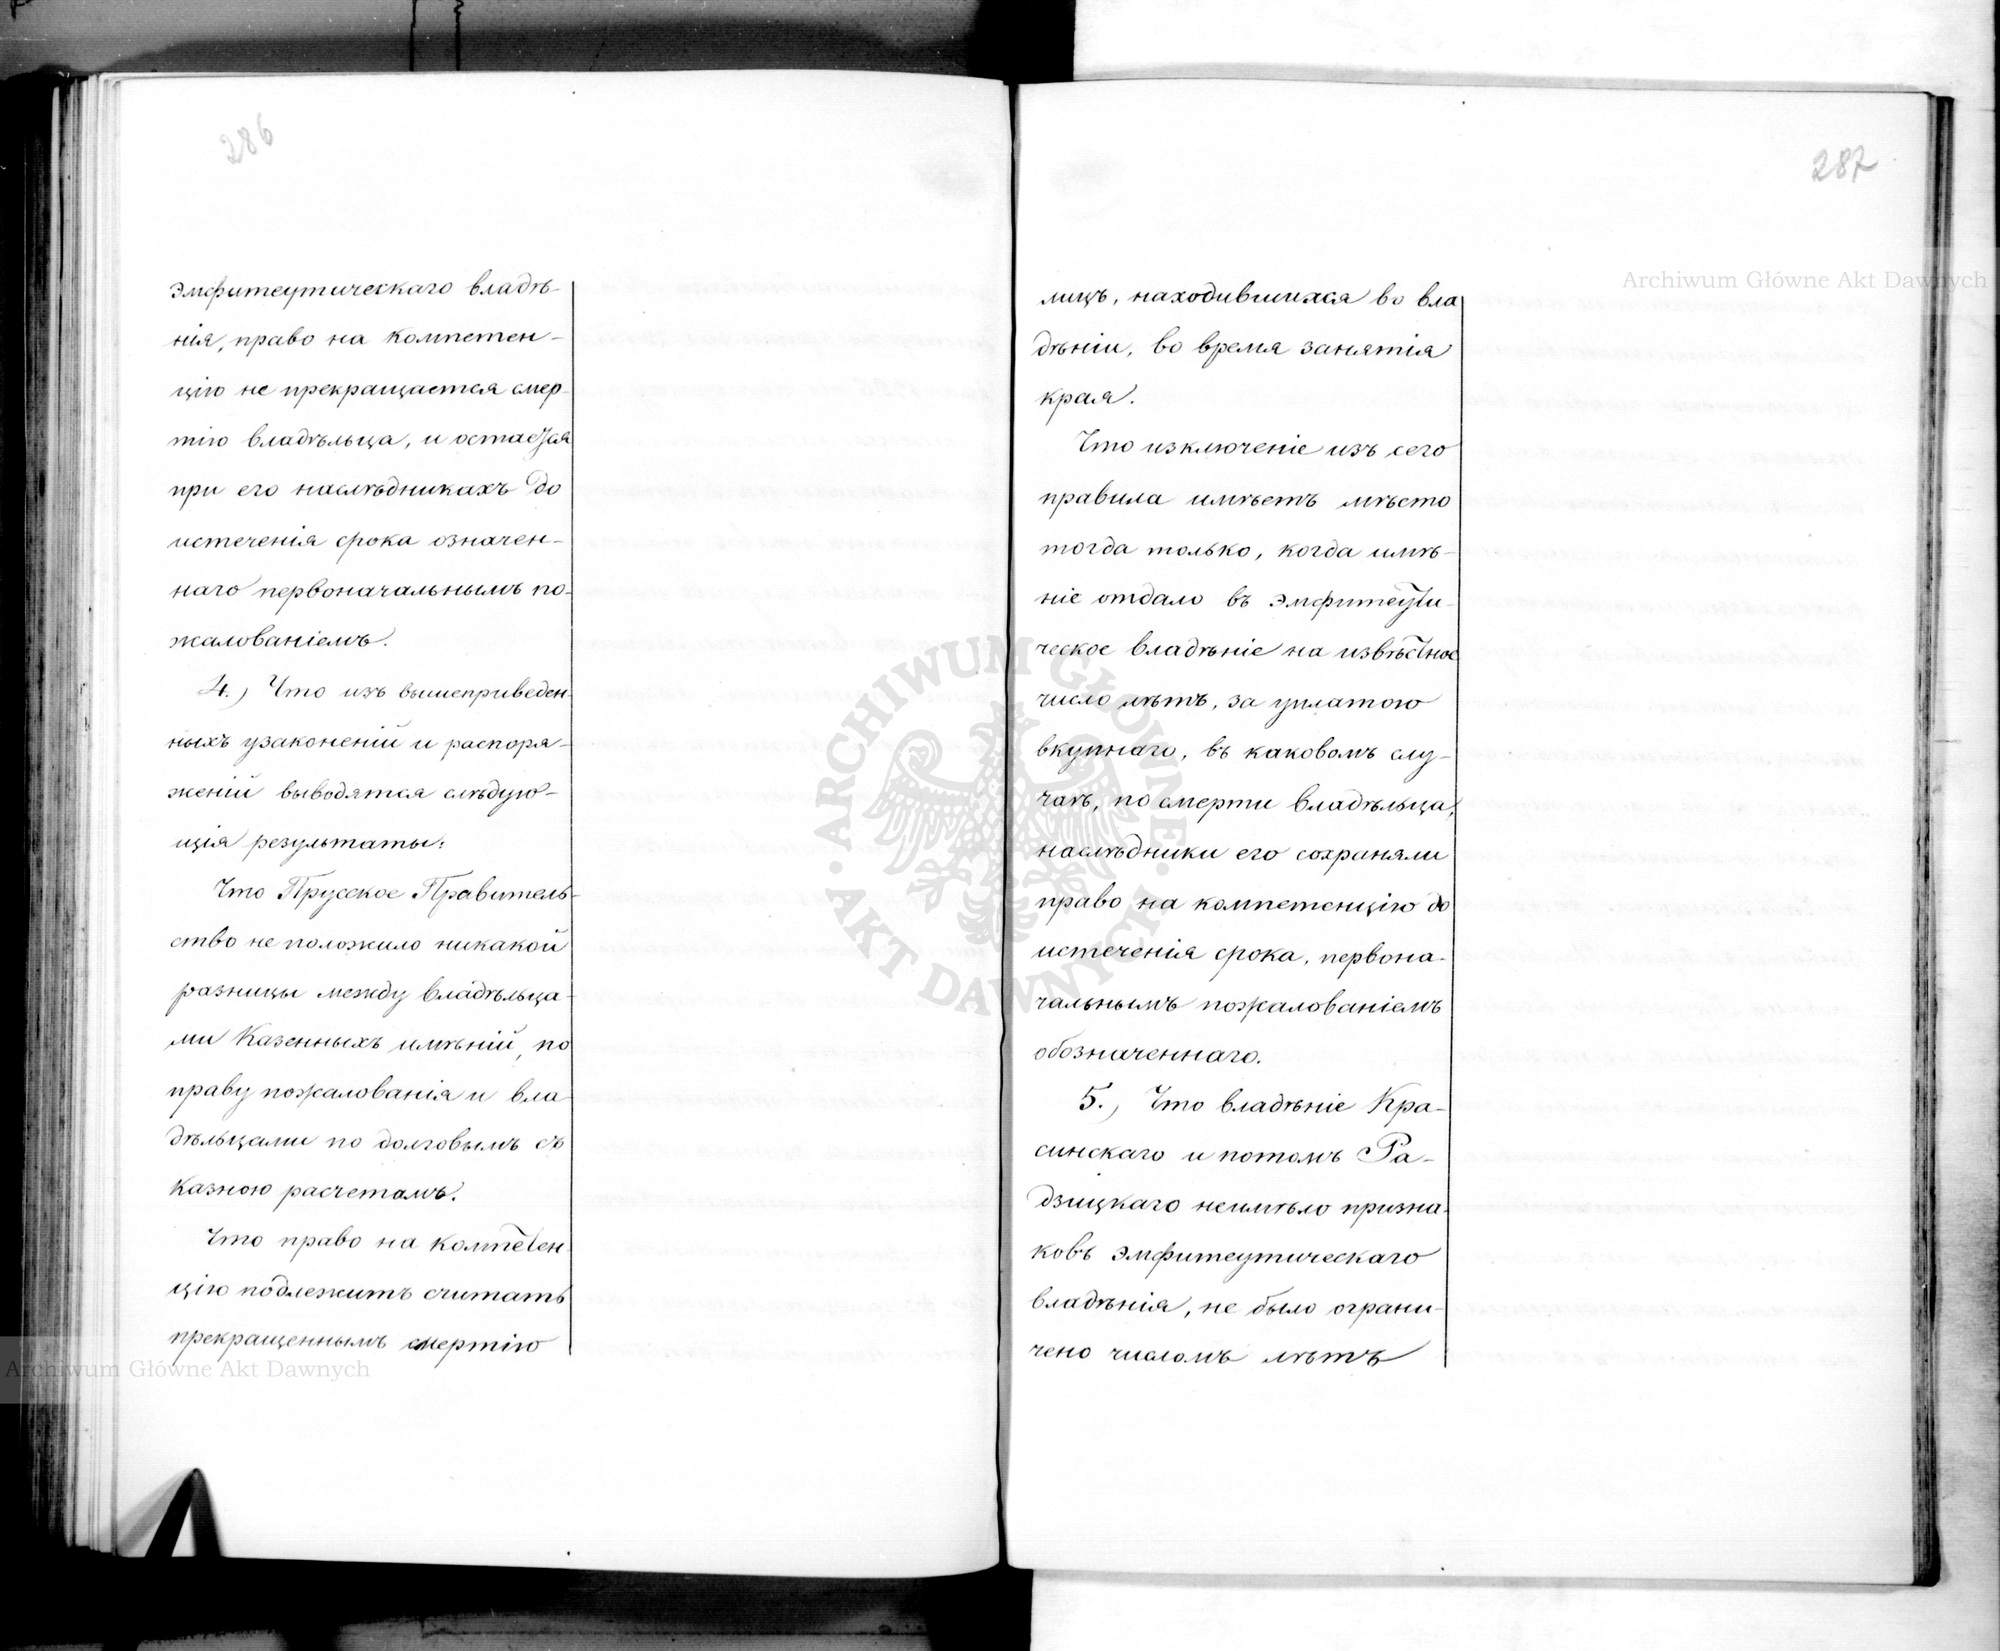 286
эмфитеутическаго владѣ-
нія, право на компетен-
цію не прекращается смер-
тію владѣльца, и остается
при его наслѣдникахъ до
истеченія срока означен-
наго первоначальнымъ по-
жалованіемъ.
4.) Что изъ вышеприведен-
ныхъ узаконеній и распоря-
женій выводятся слѣдую-
щія результаты:
Что Прусское Правитель-
ство не положило никакой
разницы между владѣльца-
ми Казенныхъ имѣній, по
праву пожалованія и вла-
дѣльцами по долговымъ съ
казною расчетамъ.
Что право на компетен-
цію подлежитъ считать
прекращеннымъ смертію
287
лицъ, находившихся во вла
дѣніи, во время занятія
края.
Что изключеніе изъ сего
правила имѣетъ мѣсто
тогда только, когда имѣ-
ніе отдано въ эмфитеути-
ческое владѣніе на извѣстное
число лѣтъ, за уплатою
вкупнаго, въ каковомъ слу-
чаѣ, по смерти владѣльца,
наслѣдники его сохраняли
право на компетенцію до
истеченія срока, первона-
чальнымъ пожалованіемъ
обозначеннаго.
5.) Что владѣніе Кра-
синскаго и потомъ Ра-
дзицкаго неимѣло призна-
ковъ эмфитеутическаго
владѣнія, не было ограни-
чено числомъ лѣтъ
Archiwum Główne Akt Dawnych
Archiwum Główne Akt Dawnych
ARCHIWUM GŁÓWNE AKT DAWNYCH